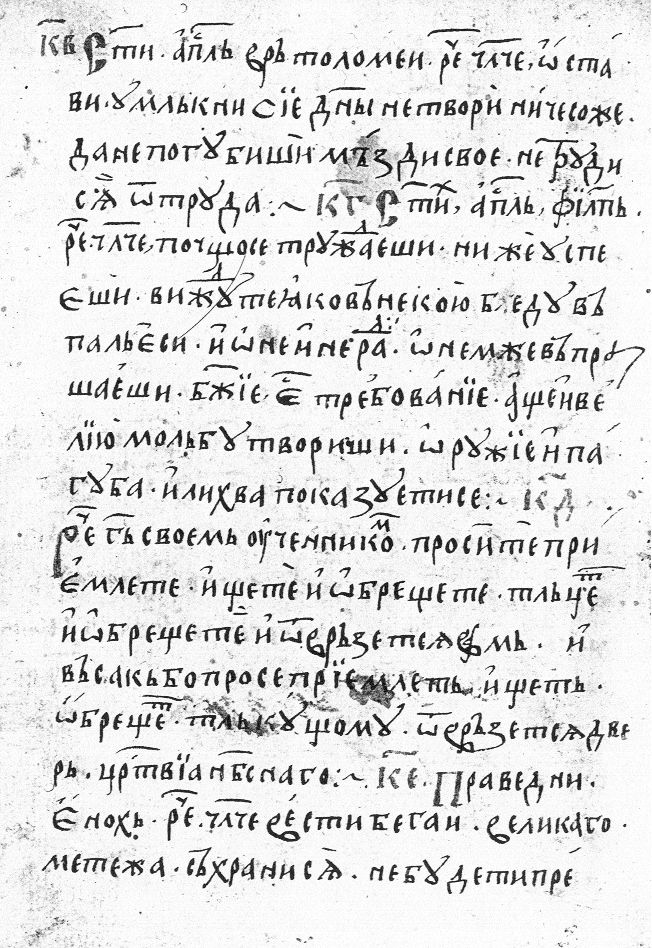 к҃в Ст҃и · а҆пⷭ҇лъ врътоломеи · рче҃ чл҃че, ѡ҆ста
ви · ѹмлькни сїе дн҃ы нетвори ничесоже ·
да непогꙋбиши мъздисвое · не трꙋди
сѧ ѿтрꙋда :~ к҃г Ст҃и, а҆пⷭ҇ль, фїлипь ·
рче҃ чл҃че, почщосе трꙋжⷣаеши · ниже ꙋспе
еши · вижⷣꙋте ꙗковънекою бледꙋ въ
пальеси · и҆ ѡ҆не и҆ нераⷣ · ѡ҆немжевъпро
шаеши · бж҃їе, е҆ⷭ требованїе · а҆ще и҆ ве
лїю мольбꙋ твориши · ѡ҆рꙋжїе и҆ па
гꙋба · и҆ лихва показꙋетисе :~ к҃д
Рче҃ гь҃ своемь ѹченникоⷨ · просите при
емлете · и҆щете и҆ ѡ҆брещете · тльцеⷮ
и҆ ѡ҆брещете и҆ ѿврьзетсѧ вмь · и҆
въсакьбопросе прїемлеть, и҆щеть ·
ѡ҆брещеⷮ · тлькꙋщомꙋ · ѿврьзетсѧ две
рь · црⷭ҇твїа нбⷭ҇наго :~ к҃е · Праведни ·
Енохь · рче҃ · чл҃че вести бегаи · великаго ·
метежа · съхранисѧ · не бꙋдетипре